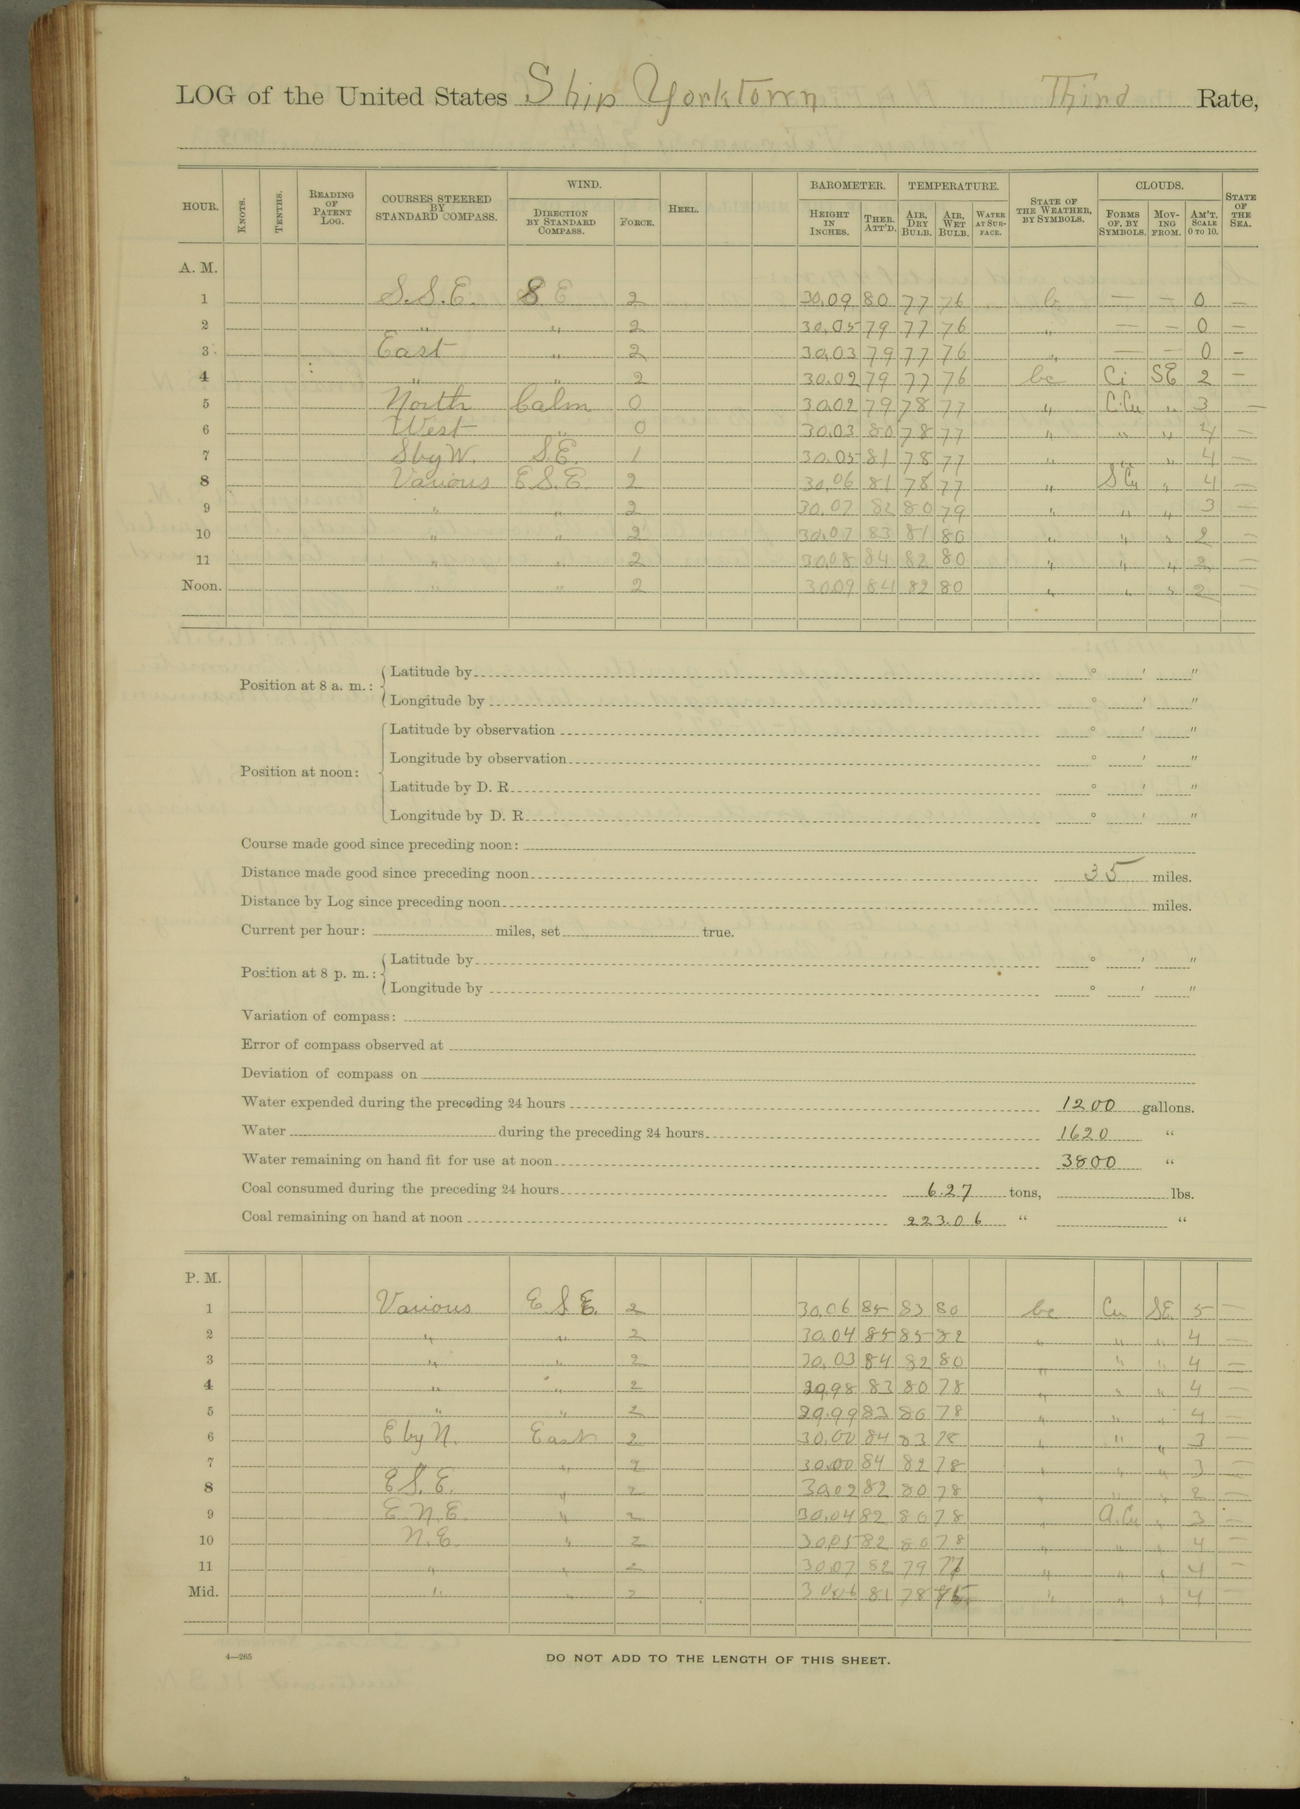 LOG of the United States Ship Yorktown Third Rate,
HOUR. KNOTS. TENTHS. READING OF PATENT LOG. COURSES STEERED BY STANDARD COMPASS. WIND. DIRECTION BY STANDARD COMPASS. FORCE. HEEL. BAROMETER. HEIGHT IN INCHES. THER. ATT'D. TEMPERATURE. AIR, DRY BULB. AIR, WET BULB. WATER AT SURFACE. STATE OF THE WEATHER, BY SYMBOLS. CLOUDS. FORMS OF, BY SYMBOLS. MOVING FROM. AM'T. SCALE 0 TO 10. STATE OF THE SEA.
A. M.
1 S.S.E. S E 2 30.09 80 77 76 b — — 0 —
2 " " 2 30.05 79 77 76 " — — 0 —
3 East " 2 30.03 79 77 76 " — — 0 —
4 " " 2 30.02 79 77 76 bc Ci SE 2 —
5 North Calm 0 30.02 79 78 77 " C.Cu " 3 —
6 West " 0 30.03 80 78 77 " " " 4 —
7 SbyW. S.E. 1 30.05 81 78 77 " " " 4 —
8 Various E.S.E. 2 30.06 81 78 77 " S Cu " 4 —
9 " " 2 30.07 82 80 79 " " " 3 —
10 " " 2 30.07 83 81 80 " " " 2 —
11 " " 2 30.08 84 82 80 " " " 2 —
Noon. " " 2 30.09 84 82 80 " " " 2 —
Position at 8 a. m.: Latitude by ° ' "
Longitude by ° ' "
Position at noon: Latitude by observation ° ' "
Longitude by observation ° ' "
Latitude by D. R. ° ' "
Longitude by D. R. ° ' "
Course made good since preceding noon:
Distance made good since preceding noon 35 miles.
Distance by Log since preceding noon miles.
Current per hour: miles, set true.
Position at 8 p. m.: Latitude by ° ' "
Longitude by ° ' "
Variation of compass:
Error of compass observed at
Deviation of compass on
Water expended during the preceding 24 hours 1200 gallons.
Water during the preceding 24 hours 1620 "
Water remaining on hand fit for use at noon 3800 "
Coal consumed during the preceding 24 hours 6.27 tons, lbs.
Coal remaining on hand at noon 223.06 " "
P. M.
1 Various E S E. 2 30.06 85 83 80 bc Cu SE 5 —
2 " " 2 30.04 85 85 82 " " " 4 —
3 " " 2 30.03 84 82 80 " " " 4 —
4 " " 2 29.98 83 80 78 " " " 4 —
5 " " 2 29.99 83 80 78 " " " 4 —
6 E by N. East 2 30.00 84 83 78 " " " 3 —
7 " 2 30.00 84 82 78 " " " 3 —
8 E S. E. " 2 30.02 82 80 78 " " " 2 —
9 E N. E. " 2 30.04 82 80 78 " A.Cu " 3 —
10 N. E. " 2 30.05 82 80 78 " " " 4 —
11 " " 2 30.07 82 79 77 " " " 4 —
Mid. " " 2 30.06 81 78 " " " 4 —
4—265
DO NOT ADD TO THE LENGTH OF THIS SHEET.